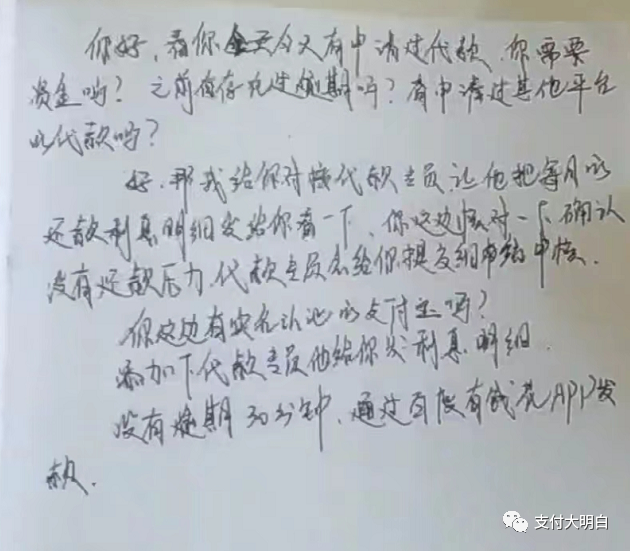 你好,看你今天有申请过代款,你需要
资金吗?之前有存在过逾期吗?有申请过其他平台
的代款吗?
好,那我给你对接代款专员,让他把每月的
还款利息明细发给你看一下,你这边核对一下,确认
没有还款压力,代款专员会给你提交细审核.
你这边有实名认证的支付宝吗?
添加下代款专员他给你发利息明细.
没有逾期30分钟,通过百度有钱花APP发
款.
支付大明白